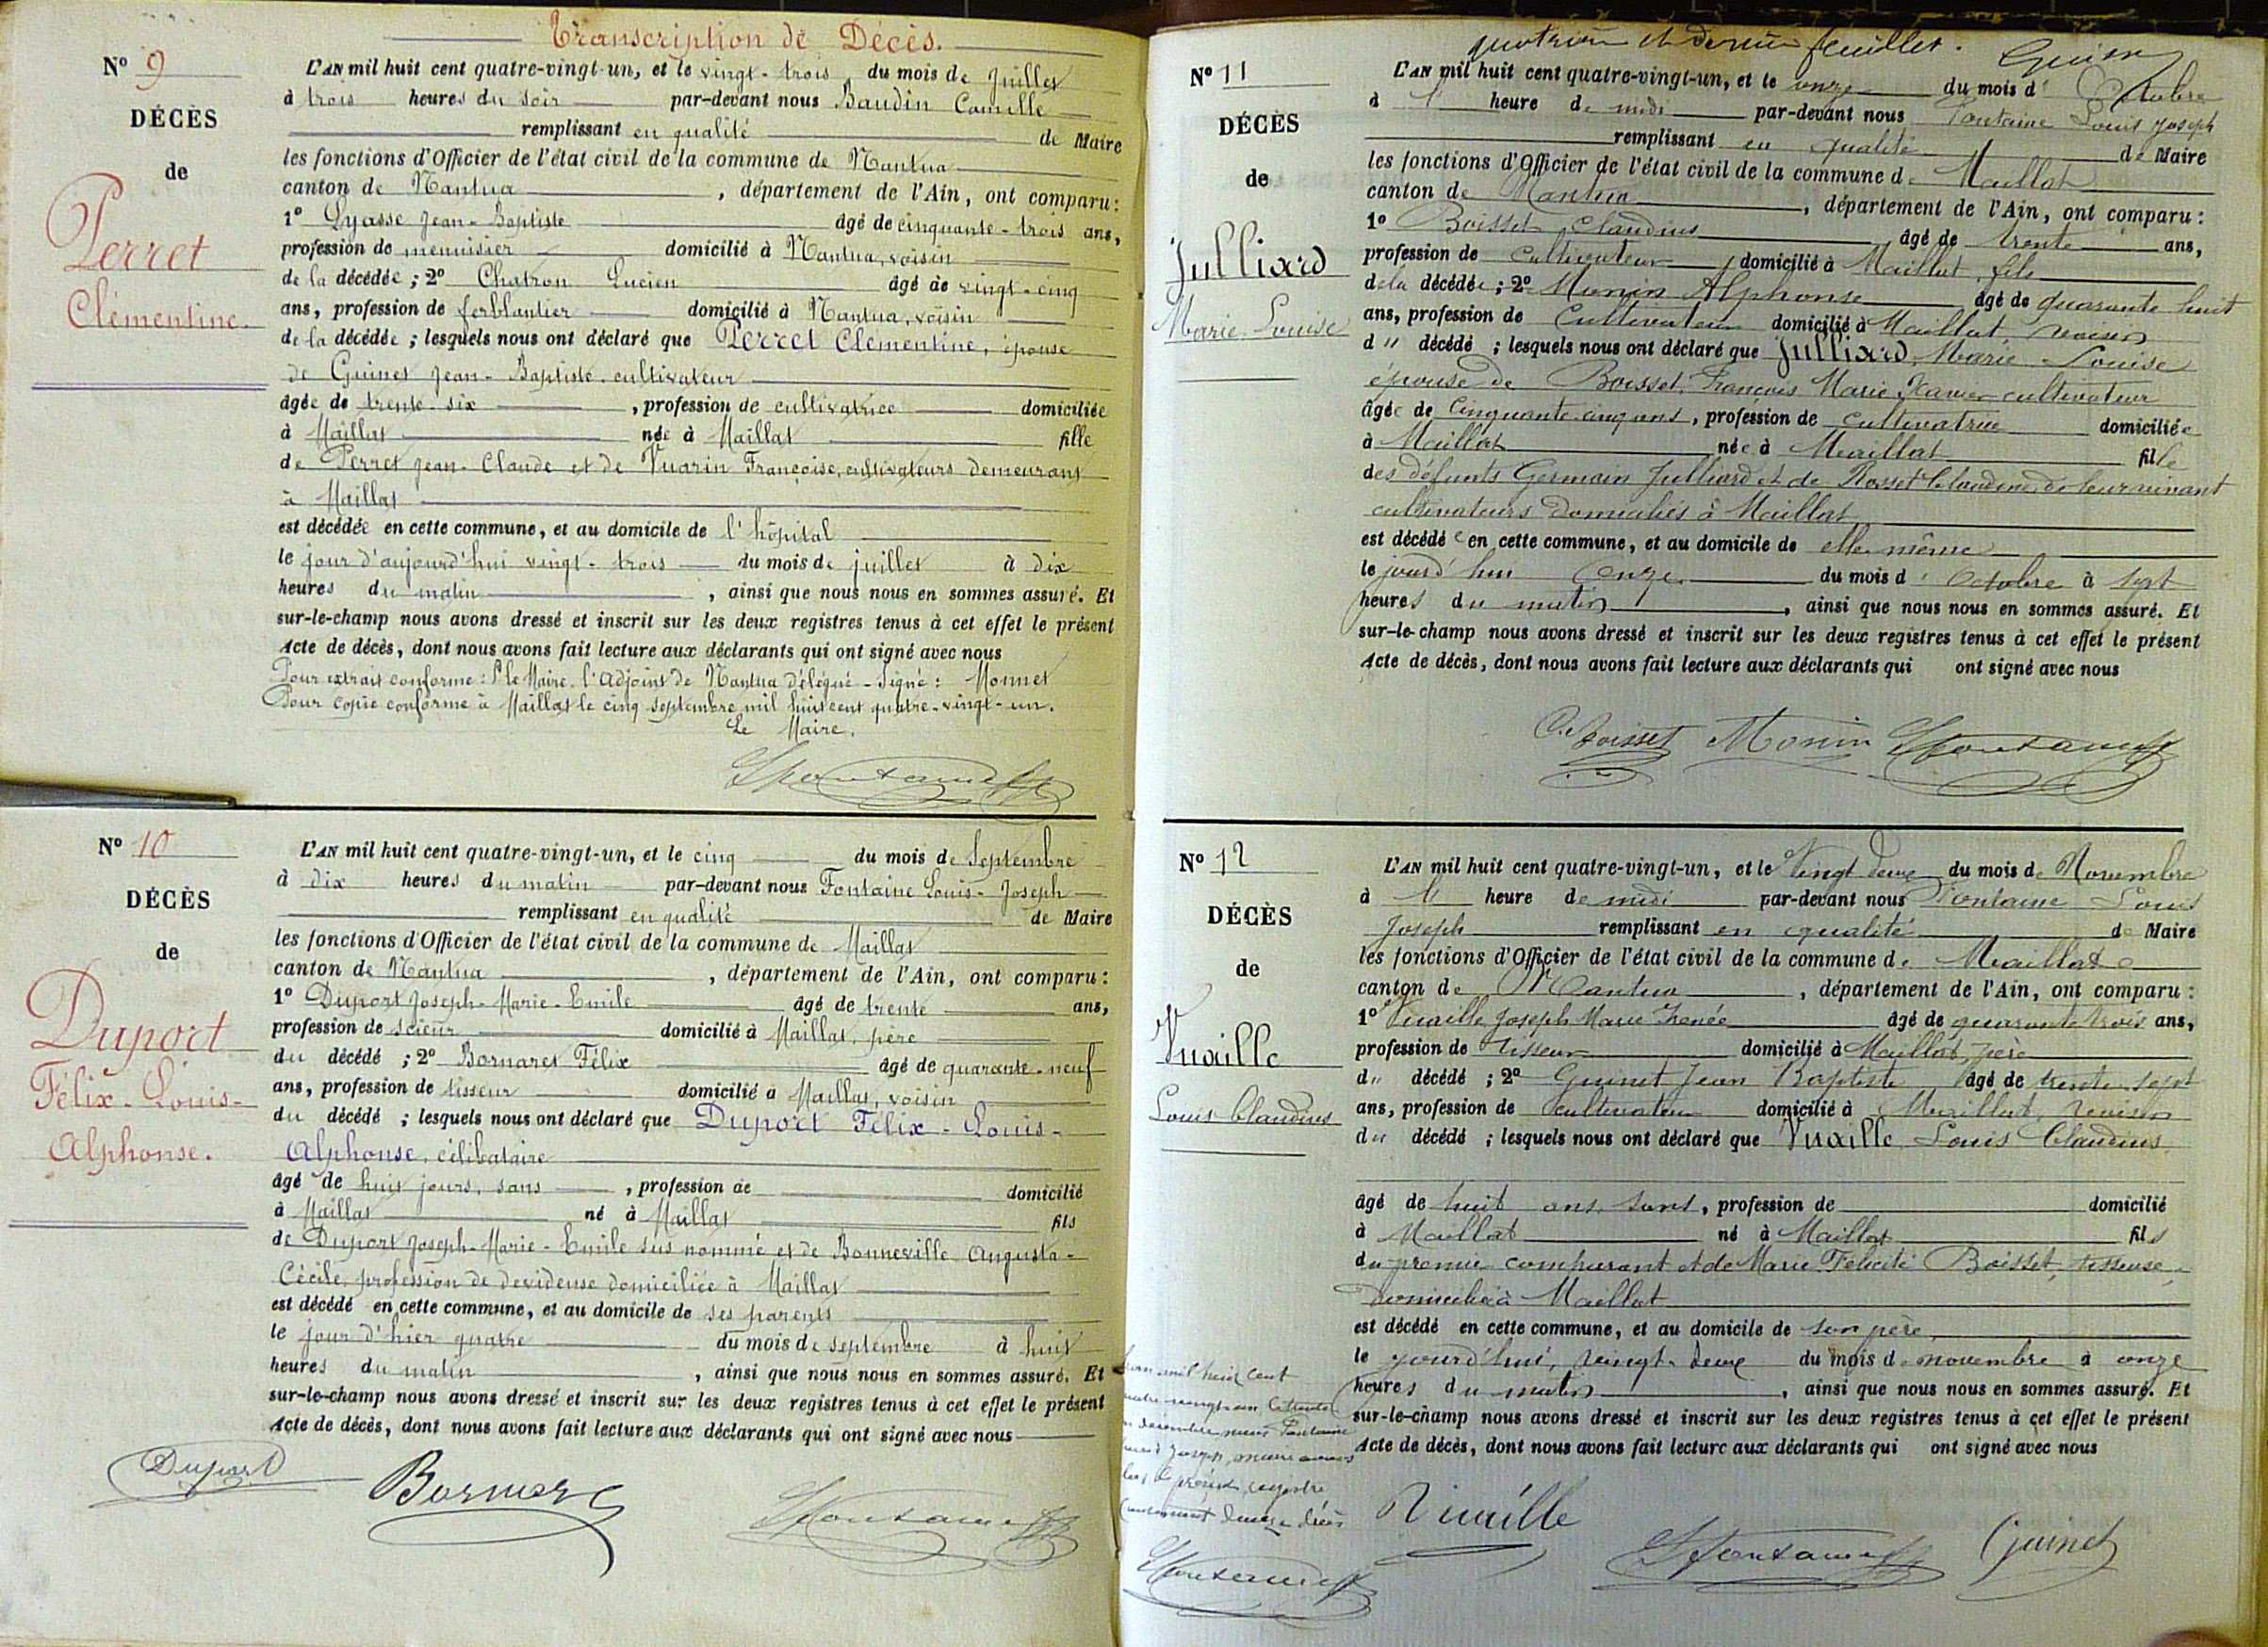 Transcription de Décès.
N° 9
DÉCÈS
de
Perret
Clémentine.
L'AN mil huit cent quatre-vingt-un, et le vingt-trois du mois de Juillet
à trois heures du soir par-devant nous Baudin Camille
remplissant en qualité de Maire
les fonctions d'Officier de l'état civil de la commune de Nantua
canton de Nantua, département de l'Ain, ont comparu:
1° Lyasse Jean-Baptiste âgé de cinquante-trois ans,
profession de menuisier domicilié à Nantua, voisin
de la décédée; 2° Chatron Lucien âgé de vingt-cinq
ans, profession de ferblantier domicilié à Nantua, voisin
de la décédée; lesquels nous ont déclaré que Perret Clémentine, épouse
de Guinet Jean-Baptiste, cultivateur
âgée de trente-six, profession de cultivatrice domiciliée
à Maillat née à Maillat fille
de Perret Jean-Claude et de Vuarin Françoise, cultivateurs demeurant
à Maillat
est décédée en cette commune, et au domicile de l'hôpital
le jour d'aujourd'hui vingt-trois du mois de juillet à dix
heures du matin, ainsi que nous nous en sommes assuré. Et
sur-le-champ nous avons dressé et inscrit sur les deux registres tenus à cet effet le présent
Acte de décès, dont nous avons fait lecture aux déclarants qui ont signé avec nous
Pour extrait conforme: Pr le Maire, l'Adjoint de Nantua délégué - Signé: Monnet
Pour copie conforme à Maillat le cinq septembre mil huit cent quatre-vingt-un.
Le Maire,
N° 10
DÉCÈS
de
Duport
Félix-Louis-
Alphonse.
L'AN mil huit cent quatre-vingt-un, et le cinq du mois de Septembre
à dix heures du matin par-devant nous Fontaine Louis-Joseph
remplissant en qualité de Maire
les fonctions d'Officier de l'état civil de la commune de Maillat
canton de Nantua, département de l'Ain, ont comparu:
1° Duport Joseph-Marie-Emile âgé de trente ans,
profession de scieur domicilié à Maillat, père
du décédé; 2° Bornaret Félix âgé de quarante-neuf
ans, profession de tisseur domicilié à Maillat, voisin
du décédé; lesquels nous ont déclaré que Duport Félix-Louis-
Alphonse, célibataire
âgé de huit jours, sans, profession de domicilié
à Maillat né à Maillat fils
de Duport Joseph-Marie-Emile sus nommé et de Bonneville Augusta-
Cécile, profession de devideuse domiciliée à Maillat
est décédé en cette commune, et au domicile de ses parents
le jour d'hier quatre du mois de septembre à huit
heures du matin, ainsi que nous nous en sommes assuré. Et
sur-le-champ nous avons dressé et inscrit sur les deux registres tenus à cet effet le présent
Acte de décès, dont nous avons fait lecture aux déclarants qui ont signé avec nous
Duport Bornaret
quatrième et dernier feuillet.
N° 11
DÉCÈS
de
Julliard
Marie-Louise
L'AN mil huit cent quatre-vingt-un, et le onze du mois d'Octobre
à 1 heure de midi par-devant nous Fontaine Louis Joseph
remplissant en qualité de Maire
les fonctions d'Officier de l'état civil de la commune de Maillat
canton de Nantua, département de l'Ain, ont comparu:
1° Boisset Claudius âgé de trente ans,
profession de Cultivateur, domicilié à Maillat, fils
de la décédée; 2° Monin Alphonse âgé de quarante huit
ans, profession de Cultivateur domicilié à Maillat, voisin
du décédé; lesquels nous ont déclaré que Julliard, Marie-Louise
épouse de Boisset, François Marie Xavier cultivateur
âgée de Cinquante cinq ans, profession de cultivatrice domiciliée
à Maillat née à Maillat fille
des défunts Germain Julliard et de Rosset Claudine de leur vivant
cultivateurs domiciliés à Maillat
est décédée en cette commune, et au domicile de elle même
le jourd'hui onze du mois d'Octobre à sept
heures du matin, ainsi que nous nous en sommes assuré. Et
sur-le-champ nous avons dressé et inscrit sur les deux registres tenus à cet effet le présent
Acte de décès, dont nous avons fait lecture aux déclarants qui ont signé avec nous
C. Boisset Monin
N° 12
DÉCÈS
de
Vuaille
Louis Claudius
L'AN mil huit cent quatre-vingt-un, et le Vingt deux du mois de Novembre
à 1 heure de midi par-devant nous Fontaine Louis
Joseph remplissant en qualité de Maire
les fonctions d'Officier de l'état civil de la commune de Maillat
canton de Nantua, département de l'Ain, ont comparu:
1° Vuaille Joseph Marie Irenée âgé de quarante trois ans,
profession de Tisseur domicilié à Maillat, père
du décédé; 2° Guinet Jean Baptiste âgé de trente-sept
ans, profession de cultivateur domicilié à Maillat, voisin
du décédé; lesquels nous ont déclaré que Vuaille Louis Claudius
âgé de huit ans, sans, profession de domicilié
à Maillat né à Maillat fils
du premier comparant et de Marie Félicité Boisset, tisseuse
domiciliée à Maillat
est décédé en cette commune, et au domicile de son père,
le jourd'hui, vingt-deux du mois de novembre à onze
heures du matin, ainsi que nous nous en sommes assuré. Et
sur-le-champ nous avons dressé et inscrit sur les deux registres tenus à cet effet le présent
Acte de décès, dont nous avons fait lecture aux déclarants qui ont signé avec nous
mil huit cent
le trente
décembre nous Fontaine
Joseph, maire
le présent registre
décès
Vuaille Guinet